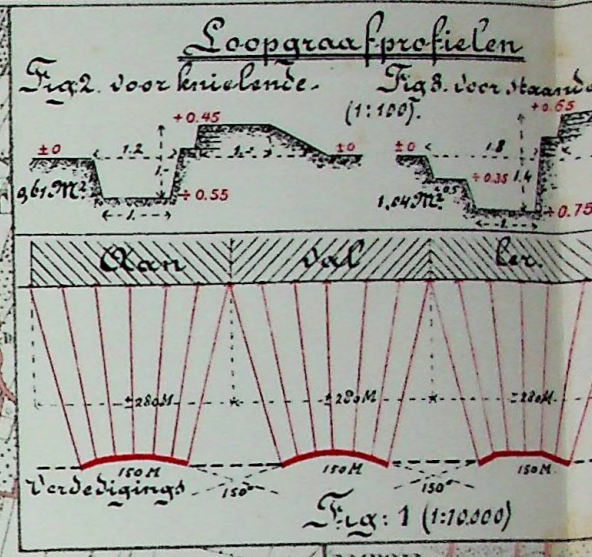 Loopgraafprofielen
Fig 2. voor knielende.
Fig 3. voor staande
(1:100).
+0.45
+0.65
±0
1.2
1.-
1.-
±0
±0
1.8
1.4
0,61 M²
÷0.55
1.-
÷0.35
0.5
1,04 M²
1.-
÷0.75
Aan val ler.
±280M ±280M ±280M
150 M 150 M 150 M
Verdedigings
150° 150°
Fig: 1 (1:10.000)